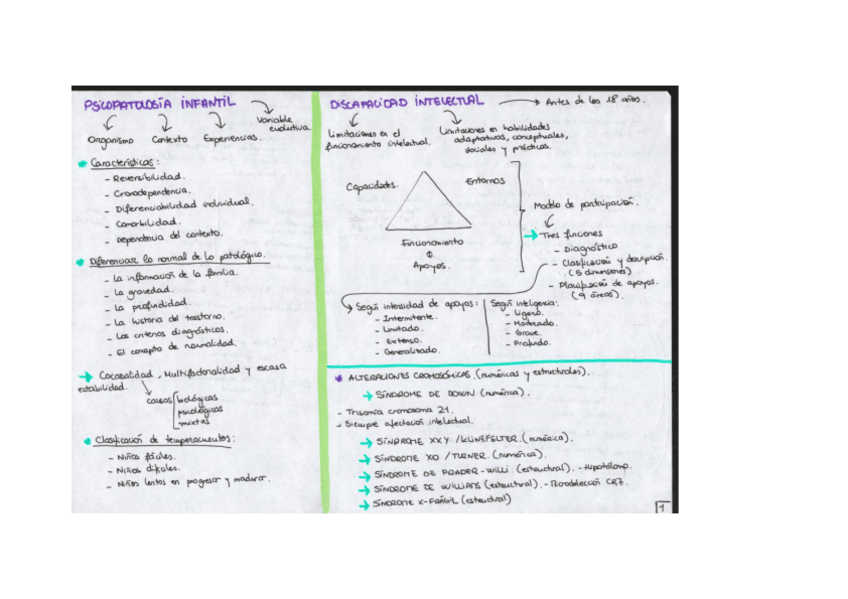 PSICOPATOLOGÍA INFANTIL
Variable
evolutiva
Organismo Contexto Experiencias.
Características:
- Reversibilidad.
- Cronodependencia.
- Diferenciabilidad individual.
- Comorbilidad.
- Dependencia del contexto.
Diferenciar lo normal de lo patológico.
- La información de la familia.
- La gravedad.
- La profundidad.
- La historia del trastorno.
- Los criterios diagnósticos.
- El concepto de normalidad.
Cocausalidad, Multifactorialidad y escasa
estabilidad.
causas biológicas
psicológicas
mixtas
Clasificación de temperamentos:
- Niños fáciles.
- Niños difíciles.
- Niños lentos en progresar y madurar.
DISCAPACIDAD INTELECTUAL → Antes de los 18 años.
Limitaciones en el
funcionamiento intelectual.
Limitaciones en habilidades
adaptativas, conceptuales,
sociales y prácticas.
Capacidades. Entornos
Funcionamiento
Apoyos.
Modelo de participación.
→ Tres funciones
- Diagnóstico
- Clasificación y descripción.
(5 dimensiones)
- Planificación de apoyos.
(9 áreas).
Según intensidad de apoyos:
- Intermitente.
- Limitado.
- Extenso.
- Generalizado.
Según inteligencia:
- Ligero.
- Moderado.
- Grave.
- Profundo.
ALTERACIONES CROMOSÓMICAS (numéricas y estructurales).
→ SÍNDROME DE DOWN (numérica).
- Trisomía cromosoma 21.
- Siempre afectación intelectual.
→ SÍNDROME XXY / KLINEFELTER. (numérica).
→ SÍNDROME XO / TURNER. (numérica).
→ SÍNDROME DE PRADER-WILLI. (estructural). - Hipotálamo.
→ SÍNDROME DE WILLIANS (estructural). - Microdelección CR7.
→ SÍNDROME X-FRÁGIL (estructural)
1